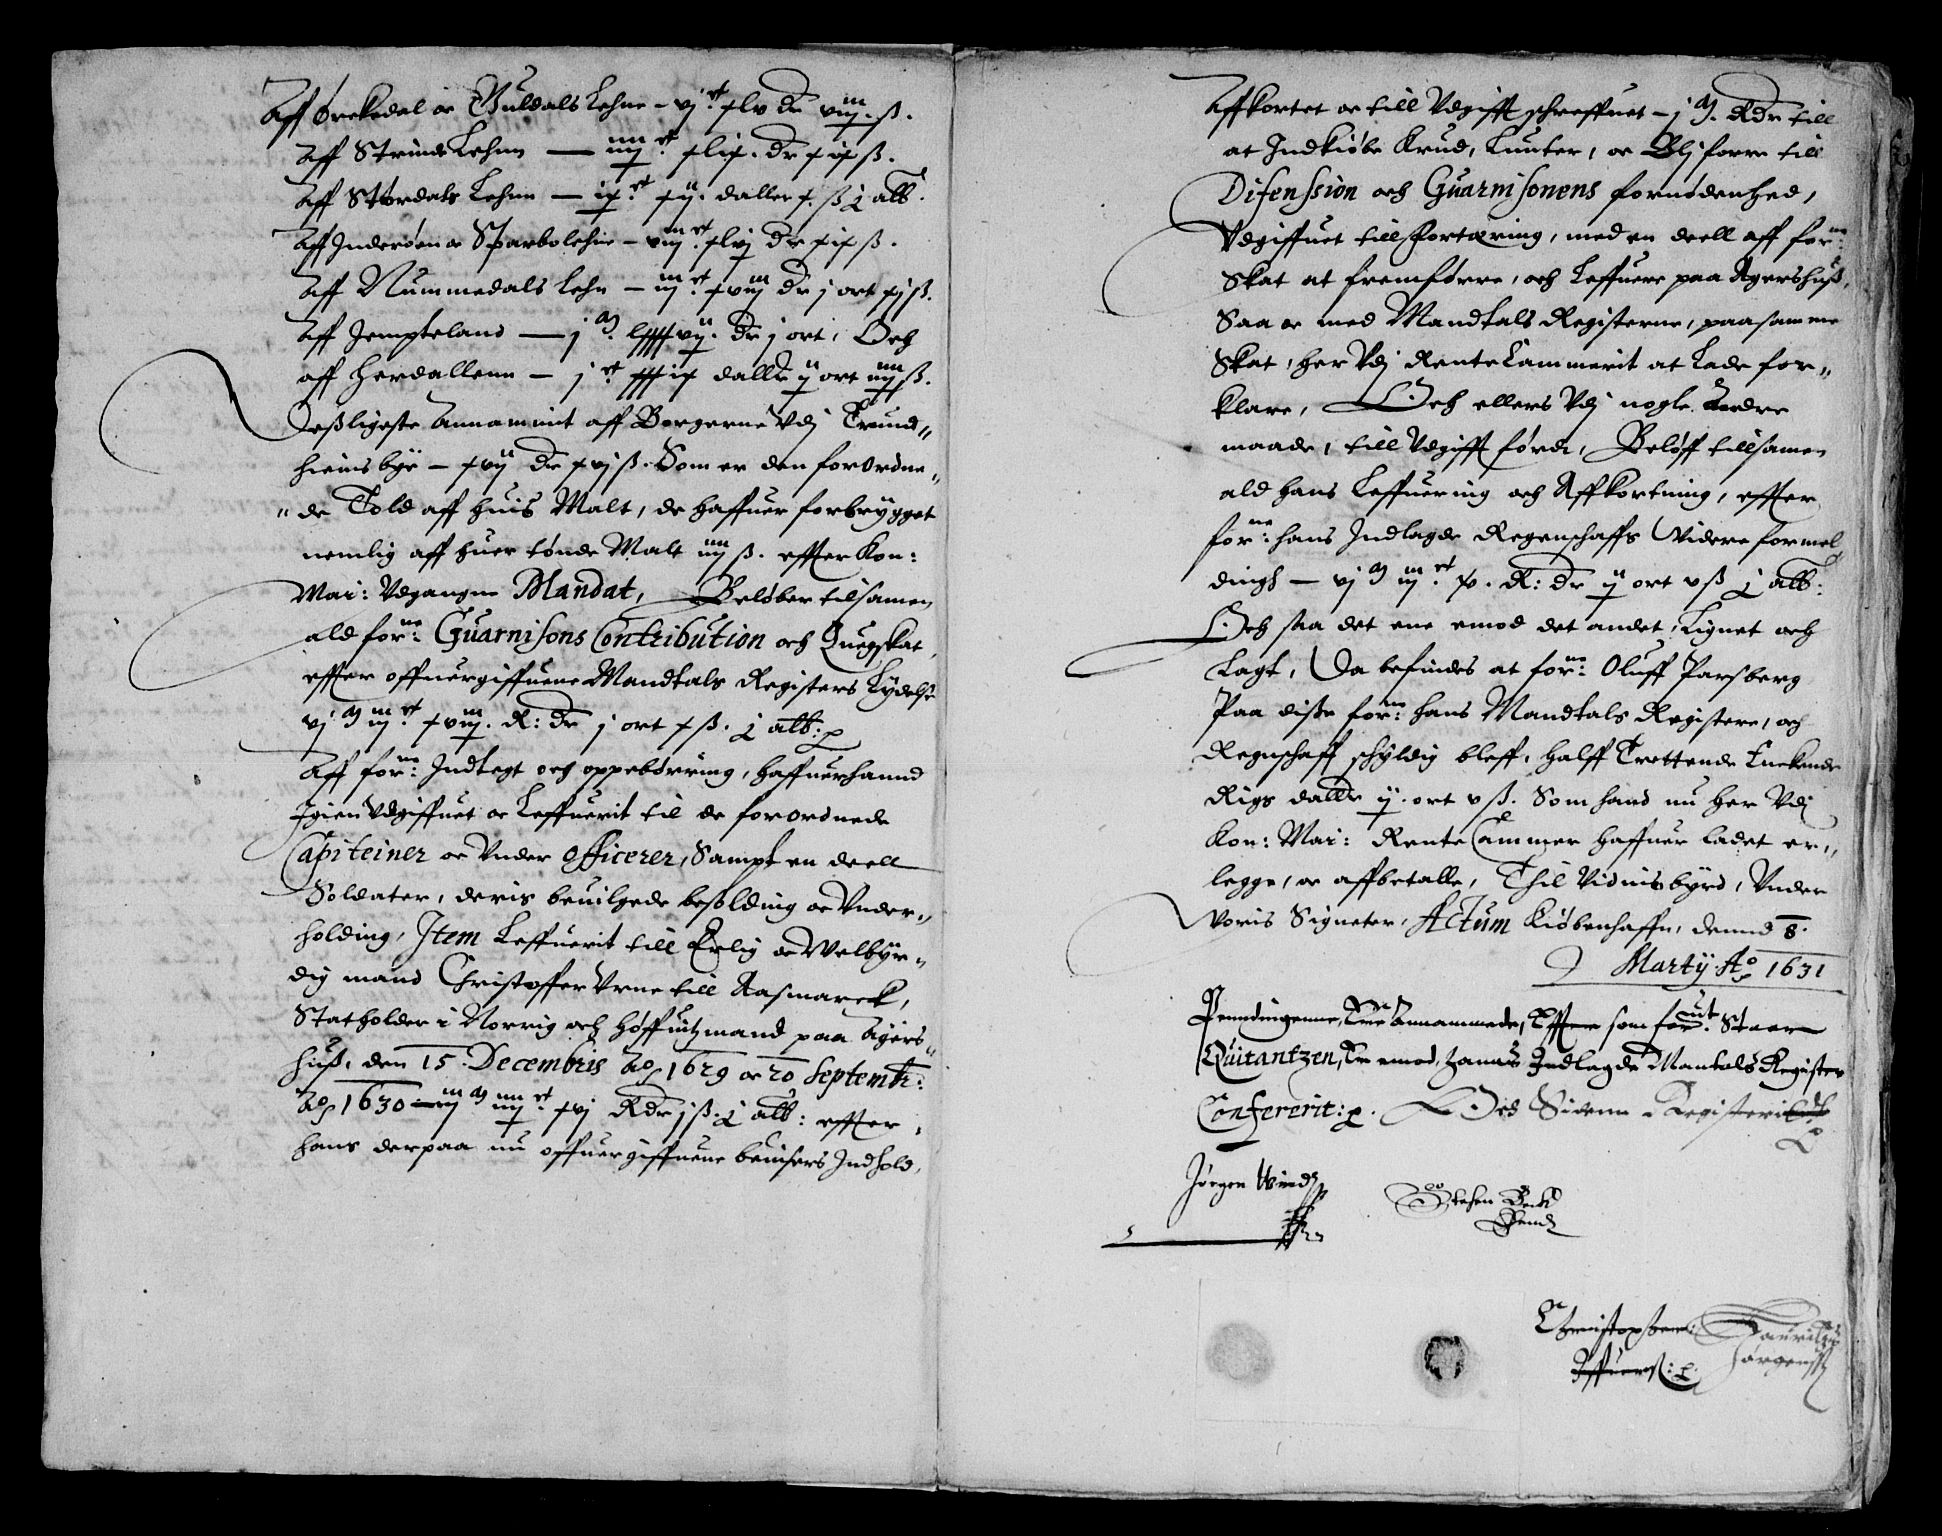 AffØrckedal oc Guldals Lehne – vj c. xlv dr viij ß.
Aff Strinde Lehnn — iiij c. xlix. dr xix ß.
Aff Størdals Lehnn — ix c. xij. daller x. ß j alb.
Aff Inderøen oc Sparbo lehne – viij c. xlvj dr xix ß.
Aff Nummedals lehn – iij c. xviij dr j ort xj ß.
Aff Jempteland — j M. lxxxxvij. dr j ort, Och
aff Herdallenn – j c xxxix dallr ij ort iiij ß.
Deßligeste Annammit aff Borgerne Vdj Trund"
hiems bye – xvij dr xvj ß. Som er den forordne"
" de Told aff huis Malt, de haffuer forbrygget
nemlig aff huer tønde Malt iiij ß. effter Kon:
Mai: Vdgangne Mandat, Beløber tilsamen
ald forne: Guarnisons Contribution och Quegskat
effter offuergiffuene Mandtals Registers Lydelse
vj M iij c. xviij. R: dr j ort x ß. j alb:
Aff forne: Indtegt och oppebørring, haffuer hannd
Igien Vdgiffuet oc Leffuerit til de forordnede
Capiteiner oc Vnder Officerer, Sampt en deell
Soldater, deris beuilgede besolding oc Vnder"
holding, Item Leffuerit till Erlig oc Welbyr"
dig mand Christoffer Vrne till Aasmarck,
Statholder i Norrig och Høffuitzmand paa Agers"
huß, den 15. Decembris Ao 1629 oc 20 Septembr:
Ao 1630 – iij M iiij c. xvj Rdr j ß. j alb: effter
hans derpaa nu offuergiffuene beuisers Indhold,
Affkortet oc till Vdgifft schreffuet – j M. Rdr till
at Indkiøbe Krud, Lunter, oc Blj forre till
Difenssion och Guarnisonens fornødenhed,
Vdgiffuet till fortæring, med en deell aff forne:
Skat at fremførre, och Leffuere paa Agershuß,
Saa oc med Mandtals Registerne, paa samme
Skat, her Vdj Rente Cammerit at Lade for"
klare, Och ellers Vdj nogle Andre
maade, till Vdgifft førdt, Beløff tillsamen
ald hans Leffuering och Affkortning, effter
forne: hans Indlagde Regenschaffs Videre formel
dingh – vj M iij c. v. R: dr ij ort v ß j alb:
Och saa det ene emod det andet, Lignet och
Lagt, Da befindes at forne: Oluff Parsberg
Paa diße forne: hans Mandtals Registere, och
Regnschaff schyldig bleff, halff Trettende Enckende
Rigs dallr ij. ort v ß. Som hand nu her Vdj
Kon: Mai: Rente Cammer haffuer ladet er"
legge, oc affbetalle, Thil Vidnisbyrd, Vnder
Voris Signeter, Actum Kiøbenhaffn, dennd 8.
Martij Ao 1631
Penndingenne, Annammede, som forut: Staar
Quitantzen, Er emod, hanns Indlagde Mantals Register
Confererit: Oed Sidenn Registerit
Jørgen Wind
Stehen Beck
Christopher
Iffuers:
Lauritz
Jørgens